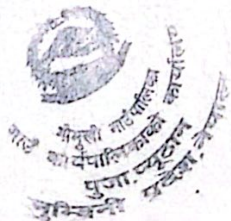 गौमुखी गाउँपालिका
गाउँ कार्यपालिकाको कार्यालय
पुजा, प्यूठान
लुम्बिनी प्रदेश, नेपाल